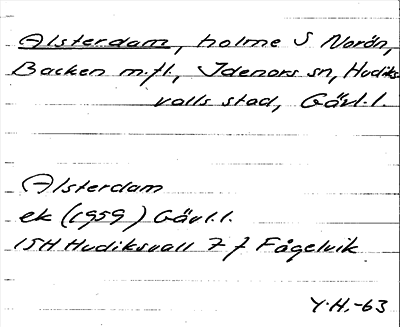 Alsterdam, holme S Norön,
Backen m.fl., Idenors sn, Hudiks
valls stad, Gävl.l.
Alsterdam
ek (1959) Gävl.l.
15H Hudiksvall 7 f Fågelvik
Y.H.-63